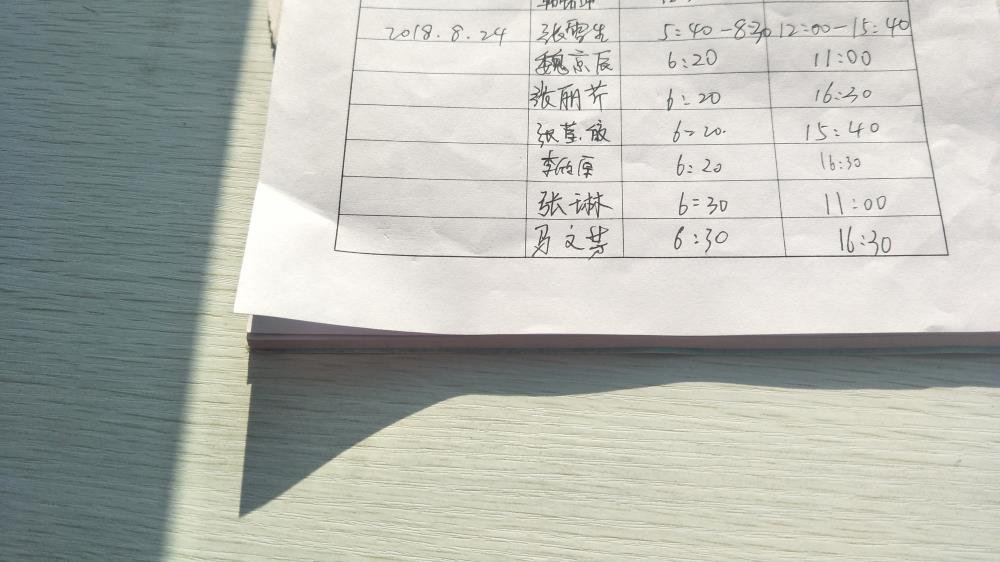 2018.8.24 张雪生 5:40-8:30 12:00-15:40
魏京辰 6:20 11:00
张丽芹 6:20 16:30
张敏 6:20 15:40
李欣原 6:20 16:30
张琳 6:30 11:00
马文梦 6:30 16:30